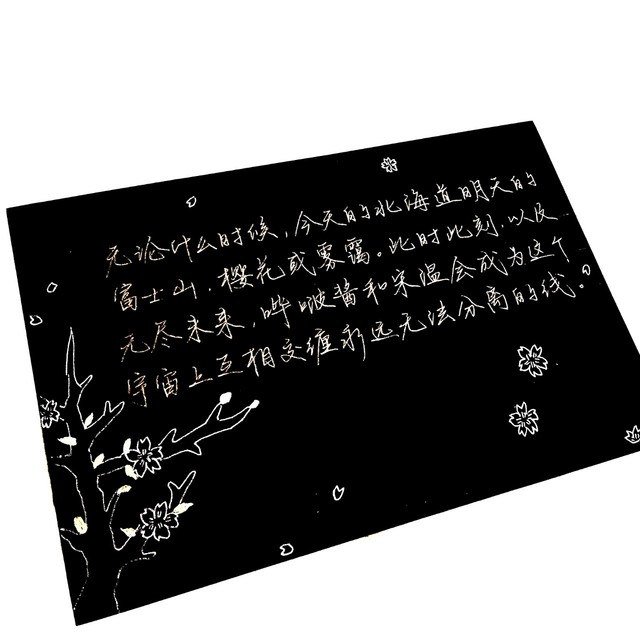 无论什么时候，今天的北海道明天的
富士山，樱花或雾霭。此时此刻，以及
无尽未来，哗啵酱和宋温会成为这个
宇宙上互相交缠永远无法分离的线。